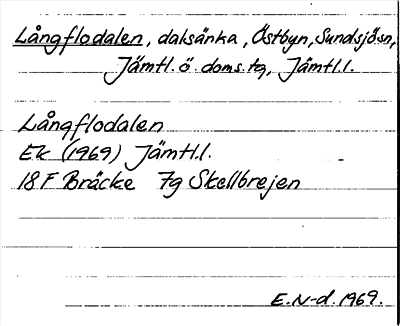 Långflodalen, dalsänka, Östbyn, Sundsjö sn,
Jämtl. ö doms. tg, Jämtl. l.
Långflodalen
Ek (1969) Jämtl. l.
18 F Bräcke 7g Skellbrejen
E. N-d. 1969.